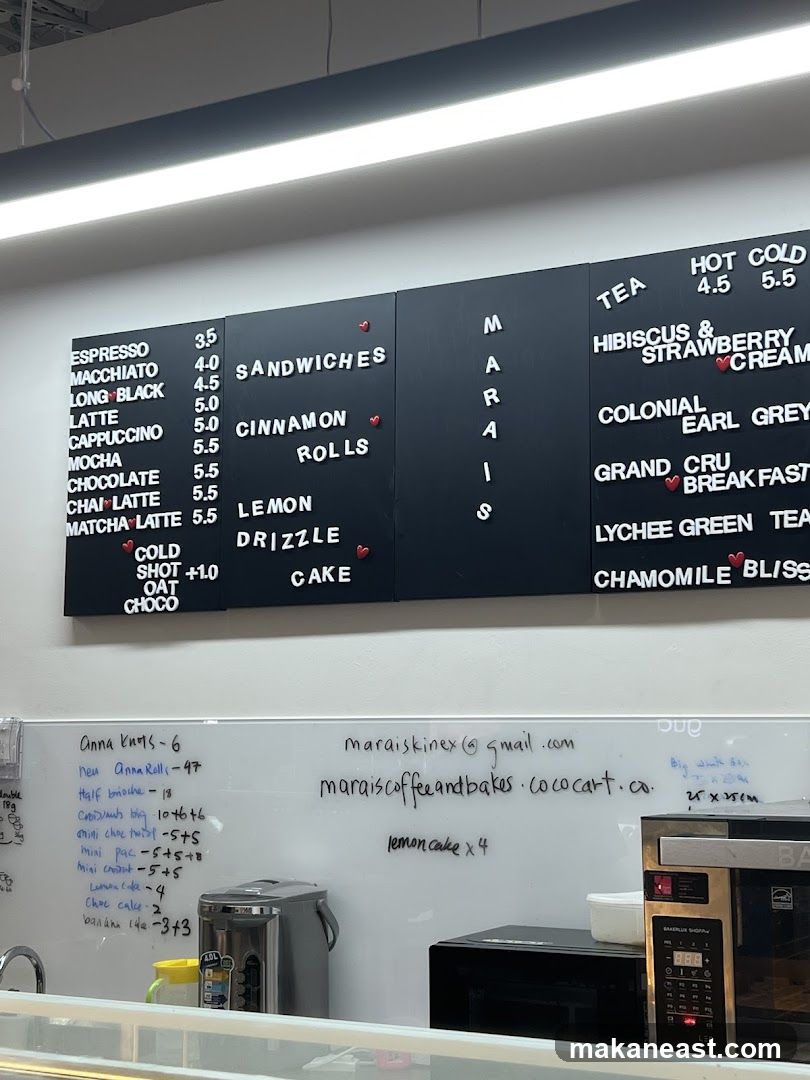 ESPRESSO 3.5
MACCHIATO 4.0
LONG BLACK 4.5
LATTE 5.0
CAPPUCCINO 5.0
MOCHA 5.5
CHOCOLATE 5.5
CHAI LATTE 5.5
MATCHA LATTE 5.5
COLD
SHOT +1.0
OAT
CHOCO
SANDWICHES
CINNAMON
ROLLS
LEMON
DRIZZLE
CAKE
MARAIS
HOT COLD
TEA 4.5 5.5
HIBISCUS &
STRAWBERRY
CREAM
COLONIAL
EARL GREY
GRAND CRU
BREAKFAST
LYCHEE GREEN TEA
CHAMOMILE BLISS
Anna Knots - 6
new Anna Rolls - 47
Half brioche - 18
10+6+6
mini choc twist - 5+5
mini pac - 5+5+8
mini - 5+5
Lemon cake - 4
Choc cake - 2
banana - 3+3
maraiskinex@gmail.com
maraiscoffeeandbakes.cococart.co.
lemon cake x4
25 x 25cm
18g
4.0L
BAKERLUX SHOP.PRO
BA
makaneast.com